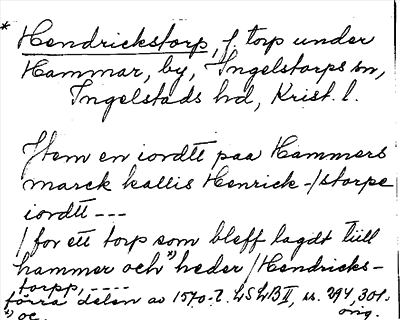 * Hendrickstorp, f. torp under
Hammar, by, Ingelstorps sn,
Ingelstads hd, Krist. l.
Item en iordtt paa Hammers
marck kallis Henrick-/storpe
iordtt ---
/for ett torp som bleff lagdt tiill
hammer och *) heder /Hendricks-
torpp, ----
förra delen av 1570-t. LSLB II, s. 294, 301.
*) oc. orig.